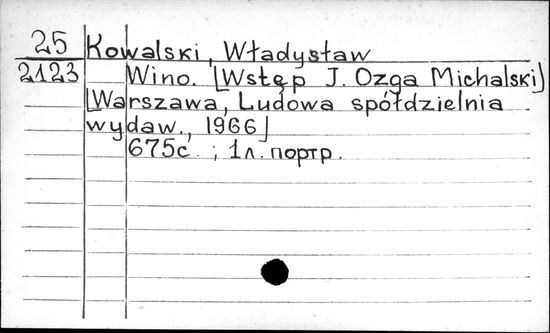 25 Kowalski, Władysław
2123 Wino. [Wstęp J. Ozga Michalski]
[Warszawa, Ludowa spółdzielnia
wydaw., 1966]
675с. ; 1л. портр.